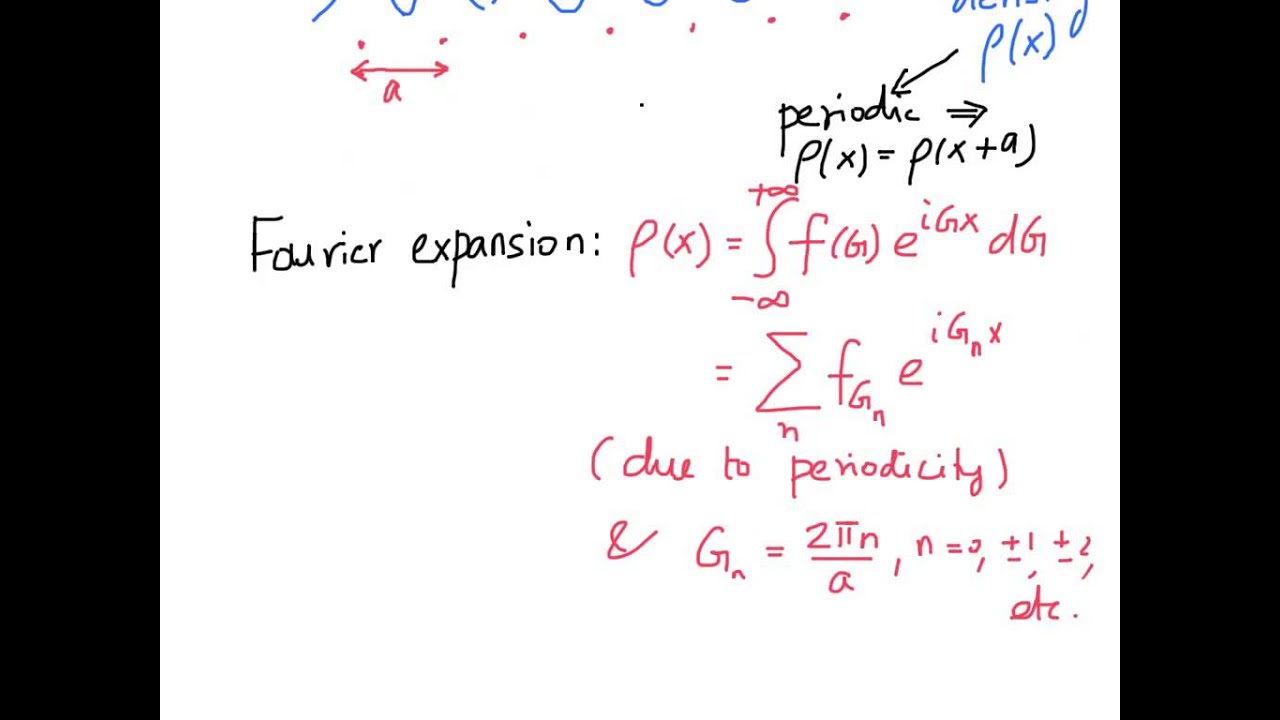 a
ρ(x)
periodic ⇒
ρ(x) = ρ(x+a)
Fourier expansion: ρ(x) = ∫_{-∞}^{+∞} f(G) e^{iGx} dG
= Σ_n f_{G_n} e^{iG_n x}
(due to periodicity)
& G_n = 2πn/a, n = 0, ±1, ±2,
etc.